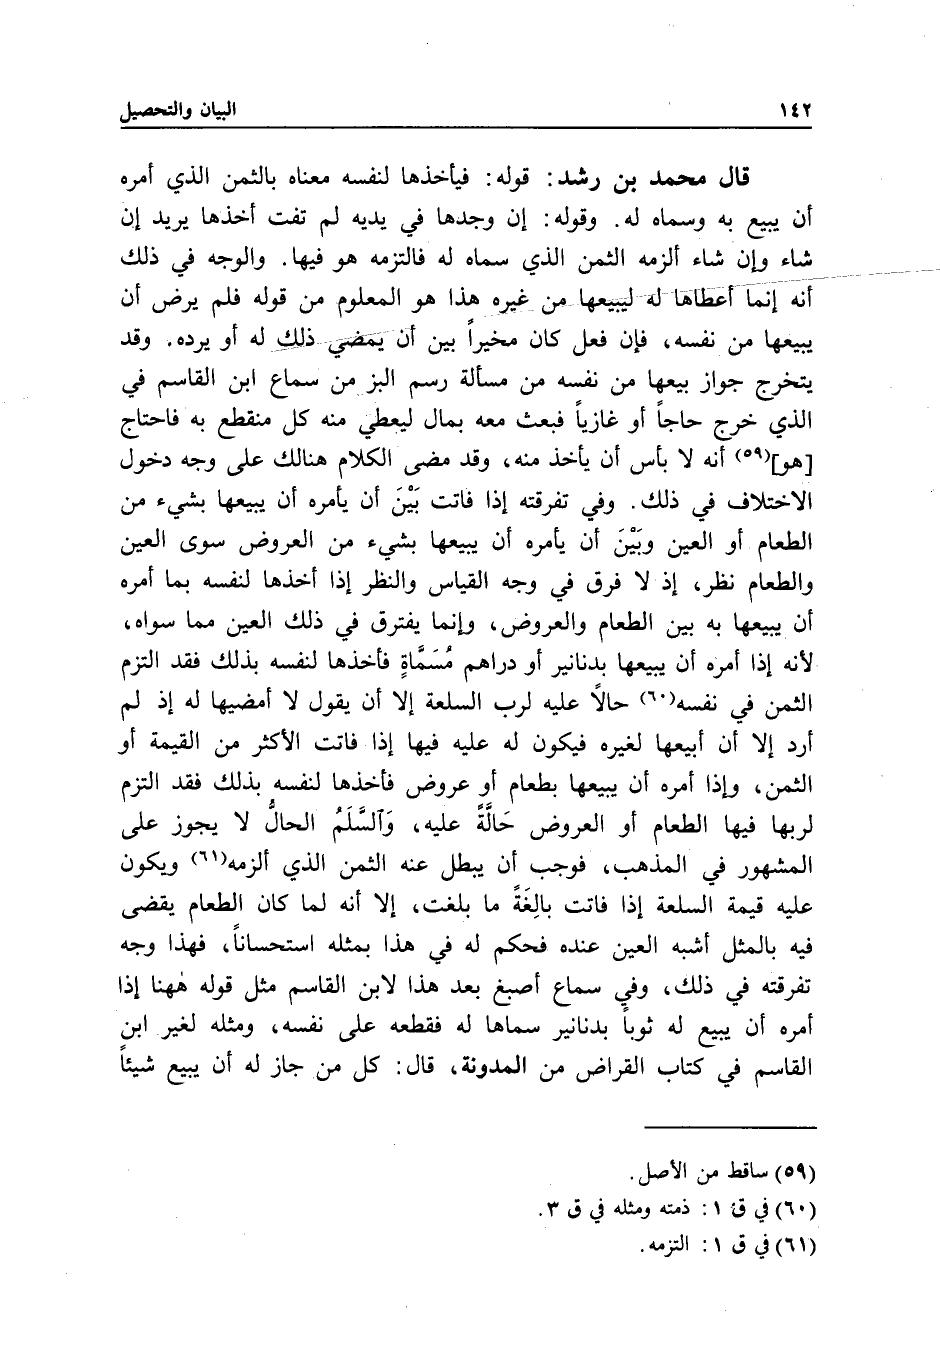 ١٤٢ البيان والتحصيل
قال محمد بن رشد: قوله: فيأخذها لنفسه معناه بالثمن الذي أمره
أن يبيع به وسماه له. وقوله: إن وجدها في يديه لم تفت أخذها يريد إن
شاء وإن شاء ألزمه الثمن الذي سماه له فالتزمه هو فيها. والوجه في ذلك
أنه إنما أعطاها له ليبيعها من غيره هذا هو المعلوم من قوله فلم يرض أن
يبيعها من نفسه، فإن فعل كان مخيراً بين أن يمضي ذلك له أو يرده. وقد
يتخرج جواز بيعها من نفسه من مسألة رسم البز من سماع ابن القاسم في
الذي خرج حاجاً أو غازياً فبعث معه بمال ليعطي منه كل منقطع به فاحتاج
[هو](٥٩) أنه لا بأس أن يأخذ منه، وقد مضى الكلام هنالك على وجه دخول
الاختلاف في ذلك. وفي تفرقته إذا فاتت بَيْنَ أن يأمره أن يبيعها بشيء من
الطعام أو العين وبَيْنَ أن يأمره أن يبيعها بشيء من العروض سوى العين
والطعام نظر، إذ لا فرق في وجه القياس والنظر إذا أخذها لنفسه بما أمره
أن يبيعها به بين الطعام والعروض، وإنما يفترق في ذلك العين مما سواه،
لأنه إذا أمره أن يبيعها بدنانير أو دراهم مُسَمَّاةٍ فأخذها لنفسه بذلك فقد التزم
الثمن في نفسه(٦٠) حالاً عليه لرب السلعة إلا أن يقول لا أمضيها له إذ لم
أرد إلا أن أبيعها لغيره فيكون له عليه فيها إذا فاتت الأكثر من القيمة أو
الثمن، وإذا أمره أن يبيعها بطعام أو عروض فأخذها لنفسه بذلك فقد التزم
لربها فيها الطعام أو العروض حَالَّةً عليه، وَٱلسَّلَمُ الحالُّ لا يجوز على
المشهور في المذهب، فوجب أن يبطل عنه الثمن الذي ألزمه(٦١) ويكون
عليه قيمة السلعة إذا فاتت بالِغَةً ما بلغت، إلا أنه لما كان الطعام يقضى
فيه بالمثل أشبه العين عنده فحكم له في هذا بمثله استحساناً، فهذا وجه
تفرقته في ذلك، وفي سماع أصبغ بعد هذا لابن القاسم مثل قوله هٰهنا إذا
أمره أن يبيع له ثوباً بدنانير سماها له فقطعه على نفسه، ومثله لغير ابن
القاسم في كتاب القراض من المدونة، قال: كل من جاز له أن يبيع شيئاً
(٥٩) ساقط من الأصل.
(٦٠) في ق ١: ذمته ومثله في ق ٣.
(٦١) في ق ١: التزمه.